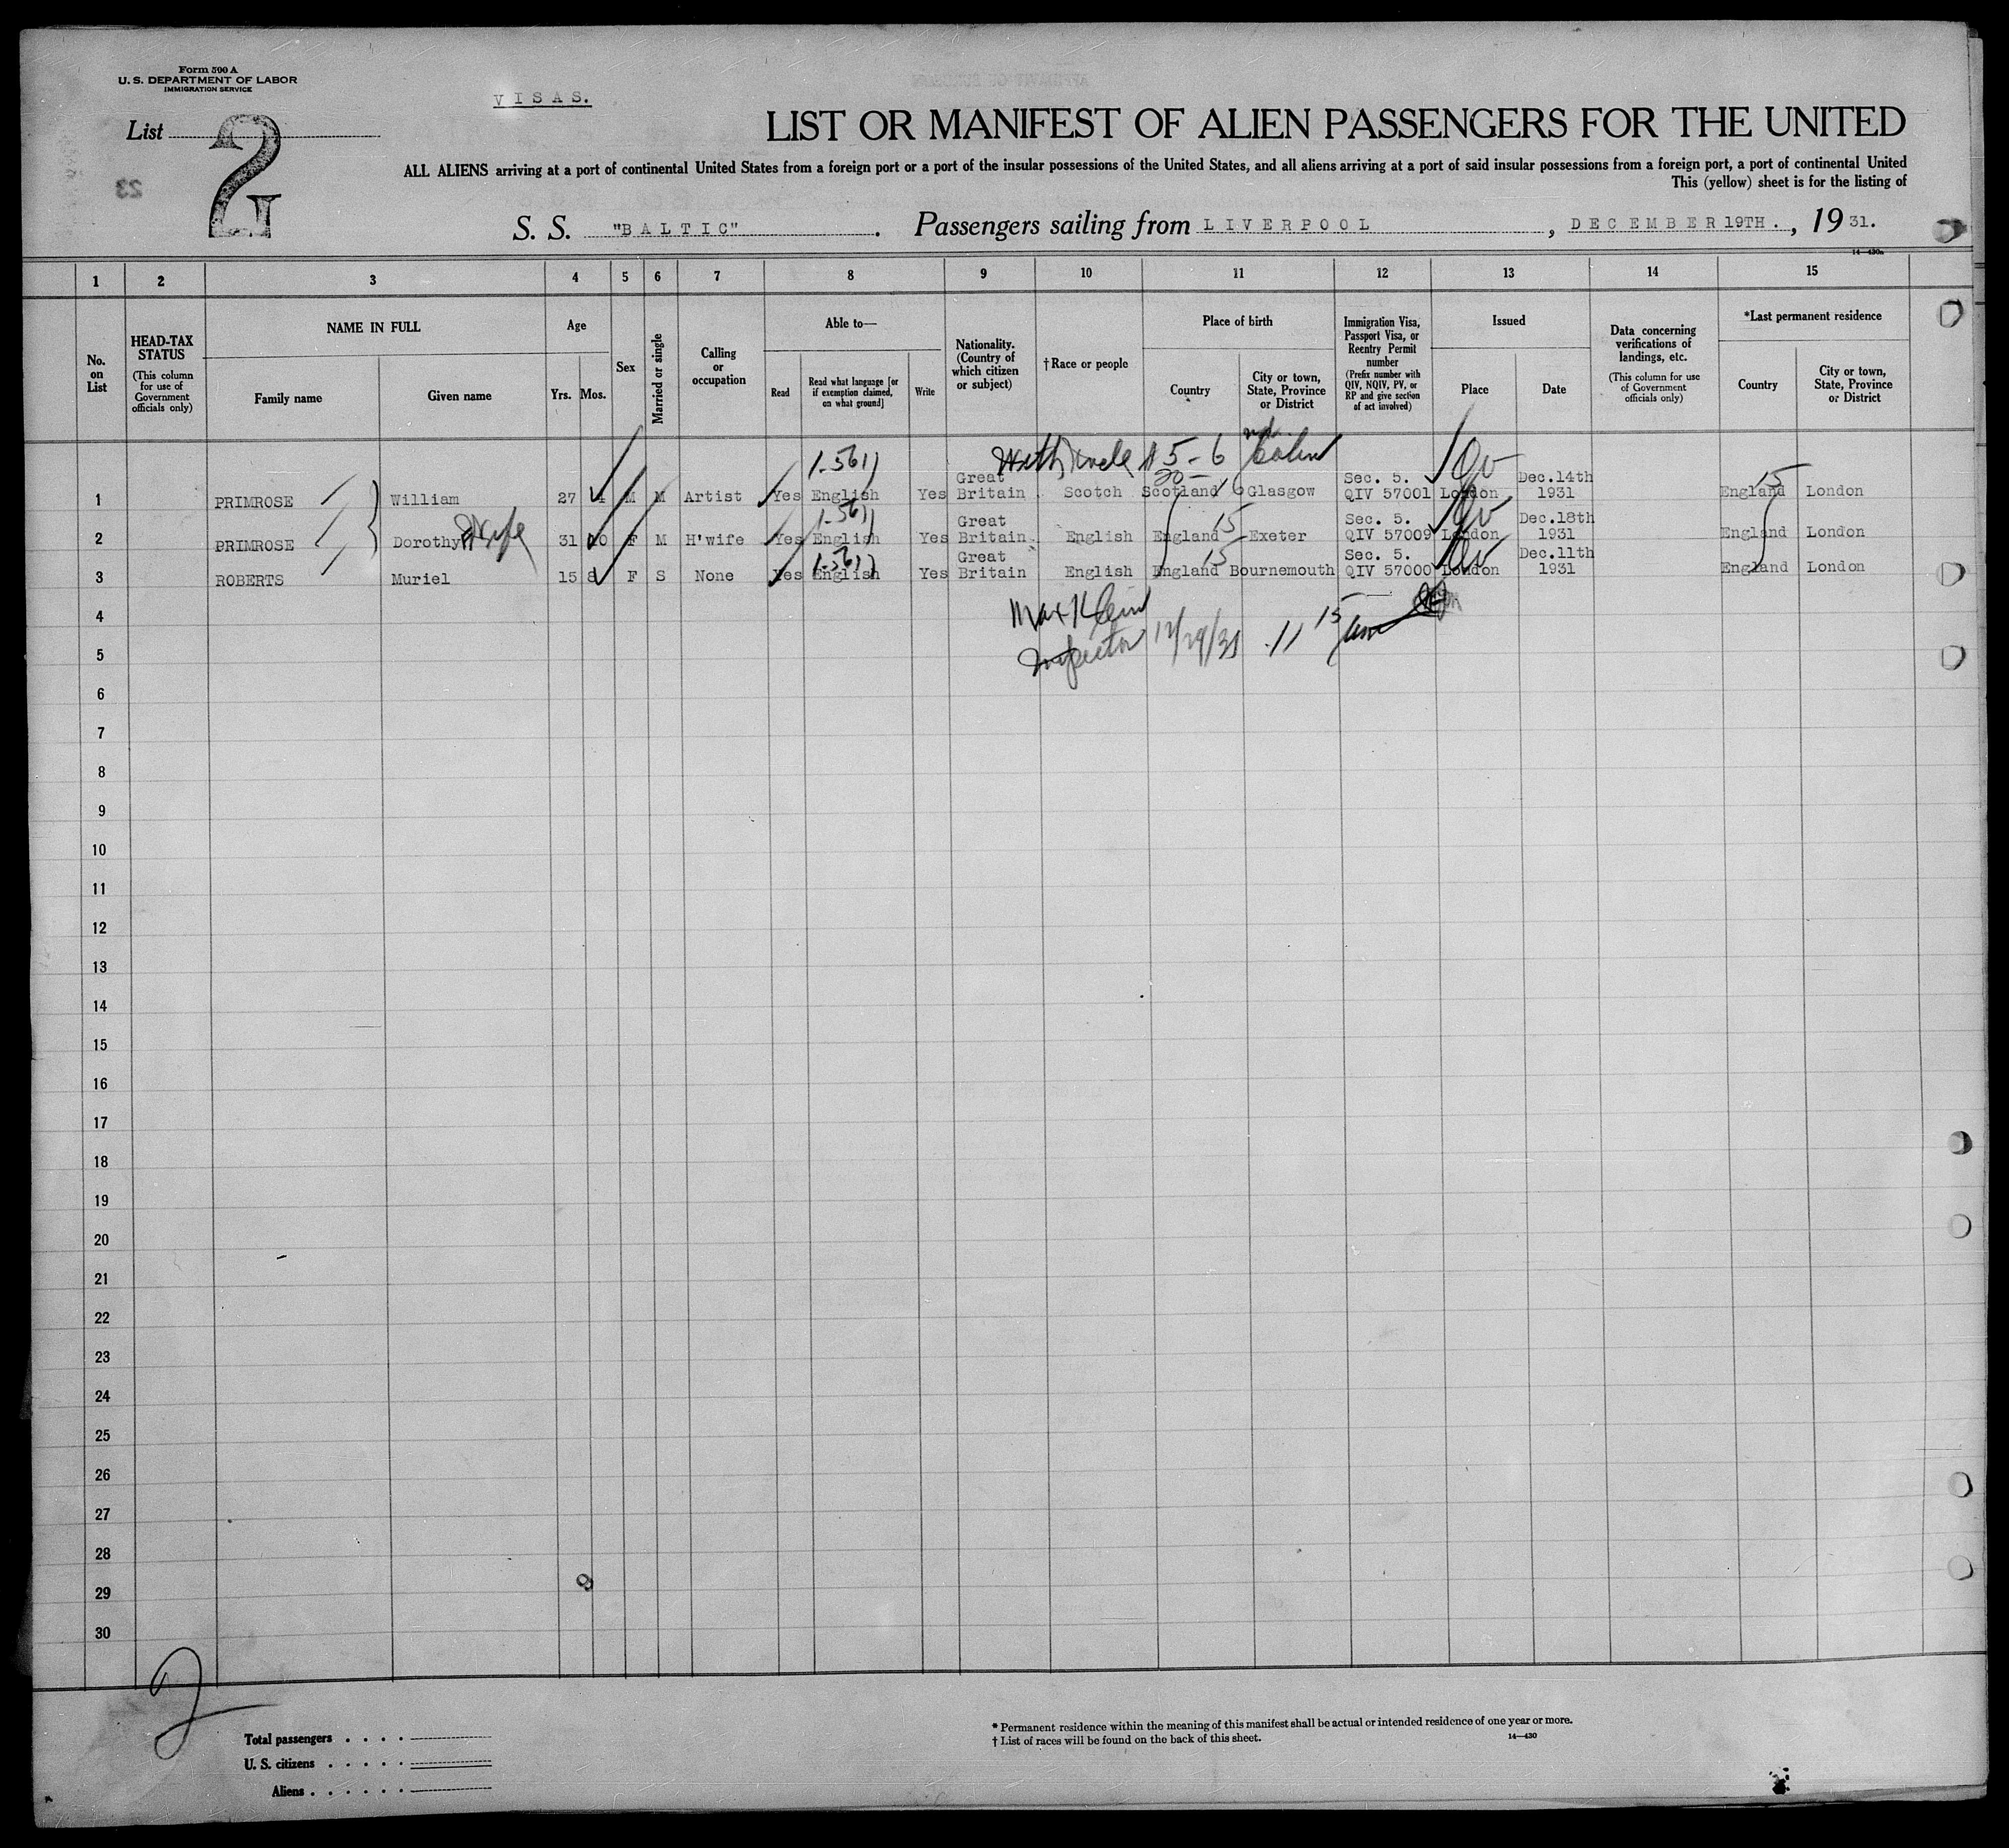 Form 500 A
U. S. DEPARTMENT OF LABOR
IMMIGRATION SERVICE
VISAS.
List 2
LIST OR MANIFEST OF ALIEN PASSENGERS FOR THE UNITED
ALL ALIENS arriving at a port of continental United States from a foreign port or a port of the insular possessions of the United States, and all aliens arriving at a port of said insular possessions from a foreign port, a port of continental United
This (yellow) sheet is for the listing of
23
S. S. "BALTIC" . Passengers sailing from LIVERPOOL , DECEMBER 19TH. , 19 31.
14—430a
1 2 3 4 5 6 7 8 9 10 11 12 13 14 15
No. on List
HEAD-TAX STATUS (This column for use of Government officials only)
NAME IN FULL
Family name
Given name
Age
Yrs. Mos.
Sex
Married or single
Calling or occupation
Able to—
Read
Read what language [or if exemption claimed, on what ground]
Write
Nationality. (Country of which citizen or subject)
† Race or people
Place of birth
Country
City or town, State, Province or District
Immigration Visa, Passport Visa, or Reentry Permit number (Prefix number with QIV, NQIV, PV, or RP and give section of act involved)
Issued
Place
Date
Data concerning verifications of landings, etc. (This column for use of Government officials only)
*Last permanent residence
Country
City or town, State, Province or District
5-6
1 PRIMROSE William 27 4 M M Artist Yes English Yes Great Britain Scotch Scotland Glasgow Sec. 5. QIV 57001 London Dec.14th 1931 England London
15
2 PRIMROSE Dorothy Wife 31 10 F M H'wife Yes English Yes Great Britain English England 15 Exeter Sec. 5. QIV 57009 London Dec.18th 1931 England London
3 ROBERTS Muriel 15 8 F S None Yes English Yes Great Britain English England 15 Bournemouth Sec. 5. QIV 57000 London Dec.11th 1931 England London
4
Max Klein
5
Inspector 12/29/31 11 15 am
6
7
8
9
10
11
12
13
14
15
16
17
18
19
20
21
22
23
24
25
26
27
28
29
30
2
Total passengers . . . .
U. S. citizens . . . . .
Aliens . . . . . .
* Permanent residence within the meaning of this manifest shall be actual or intended residence of one year or more.
† List of races will be found on the back of this sheet.
14—430